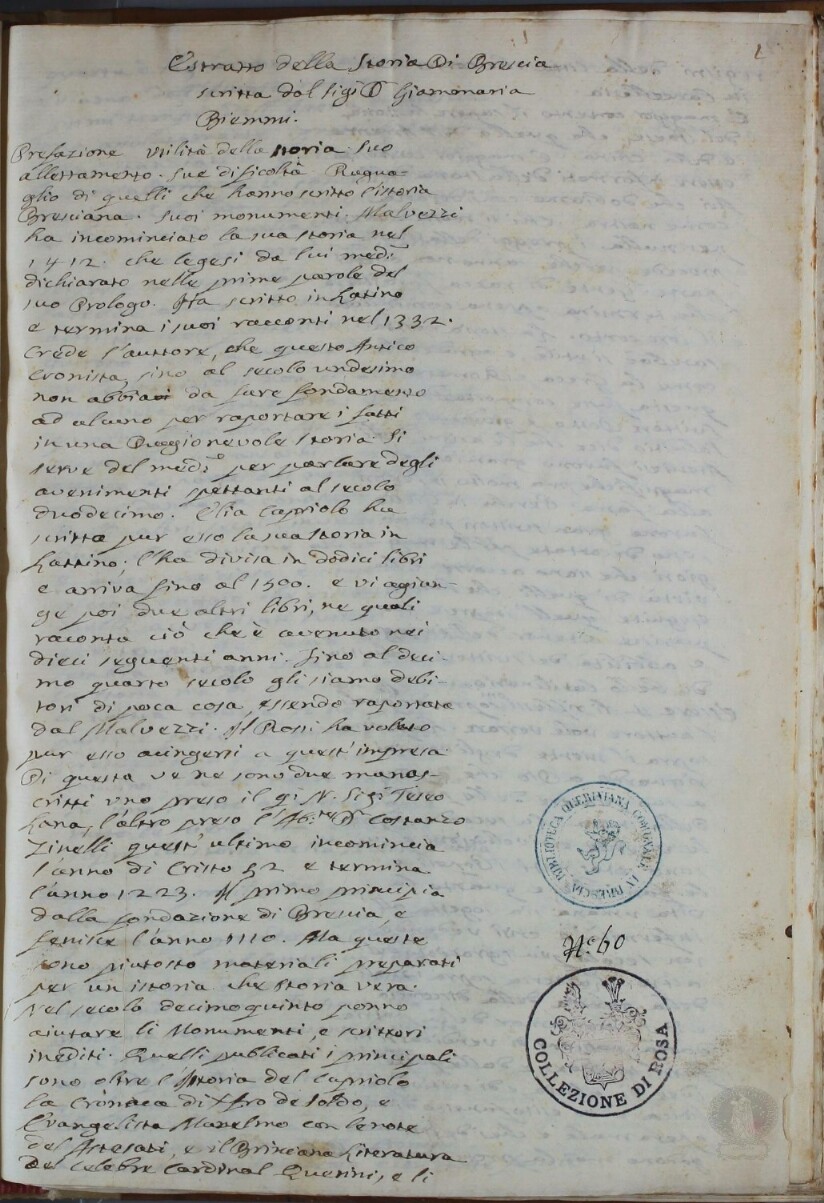 Estratto della Storia Di Brescia
scritta dal Sig:r D: Giammaria
Biemmi.
Prefazione utilità della storia. Suo
allettamento. Sue dificoltà. Ragua-
glio di quelli che hanno scritto l'istoria
Bresciana. Suoi monumenti. Malvezzi
ha incominciato la sua storia nel
1412. che legesi da lui med:mo
dichiarato nelle prime parole del
suo Prologo. Ha scritto in Latino
e termina i suoi racconti nel 1332.
Crede l'auttore, che questo Antico
Cronista, sino al secolo undesimo
non abbia da fare fondamento
ad alcuno per raportare i fatti
in una Ragionevole storia. Si
serve del med:o per parlare degli
avenimenti spettanti al secolo
duodecimo. Elia Capriolo ha
scritta pur esso la sua storia in
Lattino; l'ha divisa in dodici libri
e arriva fino al 1500. e vi agiun-
ge poi due altri libri, ne quali
raconta ciò che è avenuto nei
dieci seguenti anni. Fino al deci-
mo quarto secolo gli siamo debi-
tori di poca cosa, essendo raportata
dal Malvezzi. Il Rossi ha voluto
pur esso acingersi a quest'impresa
Di questa ve ne sono due manos-
critti uno preso il q: N. Sig: Teseo
Lana, l'altro preso l'Ab:te D: Costanzo
Zinelli quest'ultimo incomincia
l'anno di Cristo 52 e termina
l'anno 1223. Il primo principia
dalla fondazione di Brescia, e
fenisce l'anno 1110. Ma queste
sono piutosto materiali preparati
per un istoria che storia vera.
Nel secolo decimoquinto ponno
aiutare li Monumenti, e scrittori
inediti. Quelli publicati i principali
sono oltre l'Istoria del Capriolo
la Cronaca di Xfro de Soldo, e
Evangelista Manelmo con le note
del Astesati, e il Brixiana Literatura
del celebre Cardinal Querini, e li
BIBLIOTECA QUERINIANA COMUNALE IN BRESCIA
N:o 60
COLLEZIONE DI ROSA